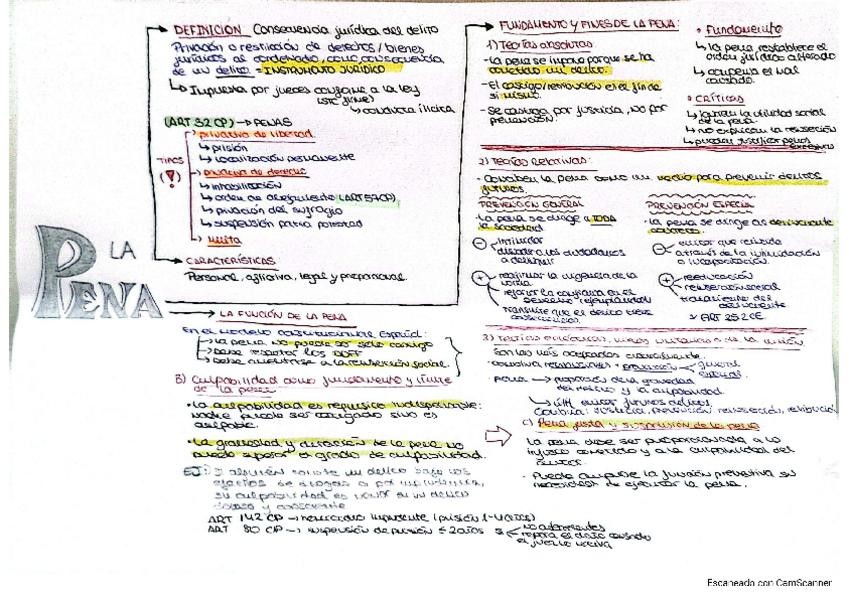 LA
PENA
DEFINICIÓN Consecuencia jurídica del delito
Privación o restricción de derechos/bienes
jurídicos al condenado, como consecuencia
de un delito = INSTRUMENTO JURÍDICO
↳ Impuesta por jueces conforme a la ley
→ conducta ilícita
(ART 32 CP) → PENAS
TIPOS
(!)
privativa de libertad
↳ prisión
↳ localización permanente
privativa de derecho
↳ inhabilitación
↳ orden de alejamiento (ART 57 CP)
↳ privación del sufragio
↳ suspensión patria potestad
multa
CARACTERÍSTICAS
Personal, aflictiva, legal y proporcional.
LA FUNCIÓN DE LA PENA
En el modelo constitucional español:
→ La pena no puede ser solo castigo
→ Debe respetar los DDFF
→ Debe orientarse a la reinserción social
B) Culpabilidad como fundamento y límite
de la pena
• La culpabilidad es requisito indispensable:
nadie puede ser castigado sino es
culpable.
• La gravedad y duración de la pena no
puede superar el grado de culpabilidad.
EJ: Si alguien comete un delito bajo los
efectos de drogas o por imprudencia,
su culpabilidad es menor
ART 142 CP → homicidio imprudente (prisión 1-4 años)
ART 80 CP → suspensión de prisión ≤ 2 años si
repara el daño causado
FUNDAMENTO Y FINES DE LA PENA:
1) Teorías absolutas
- La pena se impone porque se ha
cometido un delito.
- El castigo/retribución es el fin de
si mismo.
- Se castiga por justicia, no por
prevención.
• Fundamento
↳ la pena restablece el
orden jurídico alterado
↳ compensa el mal
causado.
• CRÍTICAS
↳ ignoran la utilidad social
de la pena
↳ no explican la reinserción
↳ pueden justificar penas
excesivas
2) Teorías relativas:
- Conciben la pena como un medio para prevenir delitos
futuros.
PREVENCIÓN GENERAL
- La pena se dirige a TODA
la sociedad
⊖ intimidar
disuadir a los ciudadanos
a delinquir
⊕ reafirmar la vigencia de la
norma
PREVENCIÓN ESPECIAL
- La pena se dirige al delincuente
⊖ evitar que reincida
a través de la intimidación
o incapacitación.
⊕ reeducación
reinserción social
tratamiento del
delincuente
ART 25.2 CE
3) Teorías eclécticas, mixtas, unitarias o de la unión
Son las más aceptadas actualmente.
- Combina retribución + prevención
general
especial
proporción de la gravedad
del delito y la culpabilidad.
evitar futuros delitos.
Combina: justicia, prevención, reinserción, retribución
C) Pena justa y suspensión de la pena
La pena debe ser proporcionada a lo
injusto cometido y a la culpabilidad del
autor.
• Puede cumplirse la función preventiva sin
necesidad de ejecutar la pena.
Escaneado con CamScanner